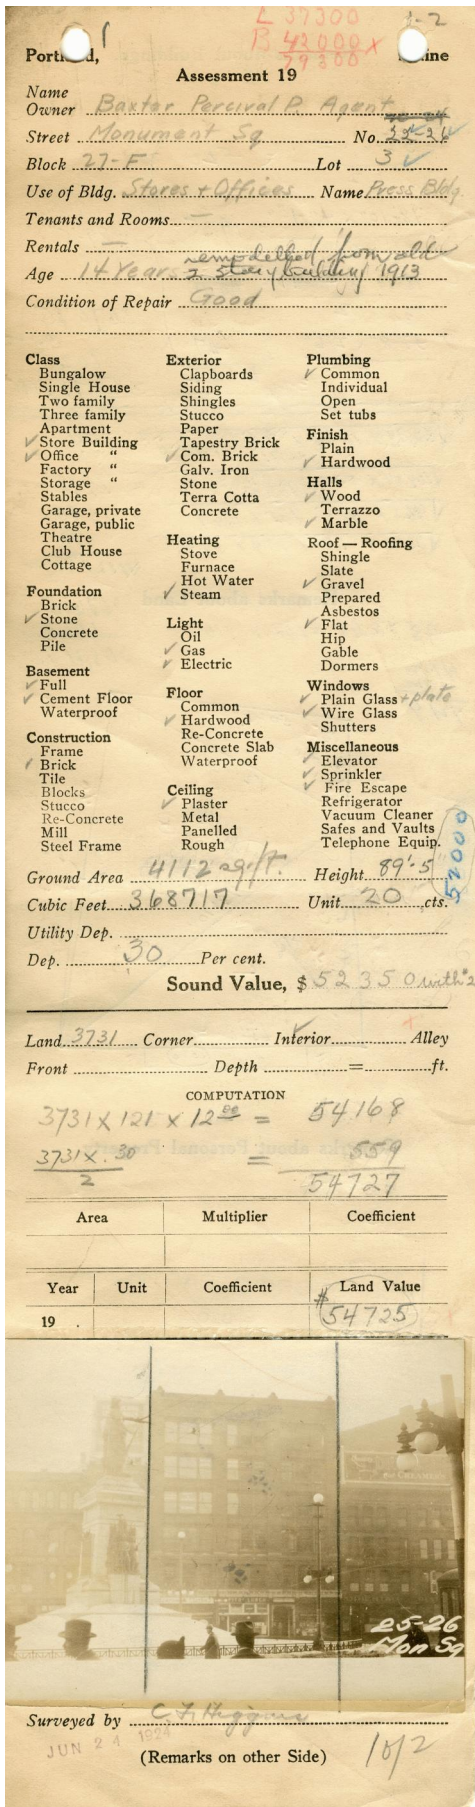 L 37300 1-2
B 42000 x
79300
Portland, Maine
Assessment 19
Name
Owner Baxter Percival P. Agent
Street Monument Sq No. 25-26
Block 27-F Lot 3
Use of Bldg. Stores + Offices Name Press Bldg.
Tenants and Rooms —
Rentals — remodelled from old
Age 14 Years 2 story building 1913
Condition of Repair Good
Class
Bungalow
Single House
Two family
Three family
Apartment
✓ Store Building
✓ Office "
Factory "
Storage "
Stables
Garage, private
Garage, public
Theatre
Club House
Cottage
Foundation
Brick
✓ Stone
Concrete
Pile
Basement
✓ Full
✓ Cement Floor
Waterproof
Construction
Frame
✓ Brick
Tile
Blocks
Stucco
Re-Concrete
Mill
Steel Frame
Exterior
Clapboards
Siding
Shingles
Stucco
Paper
Tapestry Brick
✓ Com. Brick
Galv. Iron
Stone
Terra Cotta
Concrete
Heating
Stove
Furnace
Hot Water
✓ Steam
Light
Oil
✓ Gas
✓ Electric
Floor
Common
✓ Hardwood
Re-Concrete
Concrete Slab
Waterproof
Ceiling
✓ Plaster
Metal
Panelled
Rough
Plumbing
✓ Common
Individual
Open
Set tubs
Finish
Plain
✓ Hardwood
Halls
✓ Wood
Terrazzo
✓ Marble
Roof — Roofing
Shingle
Slate
✓ Gravel
Prepared
Asbestos
✓ Flat
Hip
Gable
Dormers
Windows
✓ Plain Glass + plate
✓ Wire Glass
Shutters
Miscellaneous
✓ Elevator
✓ Sprinkler
✓ Fire Escape
Refrigerator
Vacuum Cleaner
Safes and Vaults
Telephone Equip.
52000
Ground Area 4112 sq. ft. Height 89'-5
Cubic Feet 368717 Unit 20 cts.
Utility Dep.
Dep. 30 Per cent.
Sound Value, $ 52350 with #2
Land 3731 Corner Interior ✓ Alley
Front Depth = ft.
COMPUTATION
3731 x 121 x 12 00 = 54168
3731 x .30 = 559
2
54727
Area Multiplier Coefficient
Year Unit Coefficient Land Value
19 . $ 54725
25-26
Mon Sq
Surveyed by C. F. Higgins
JUN 24 1924
(Remarks on other Side) 1 of 2